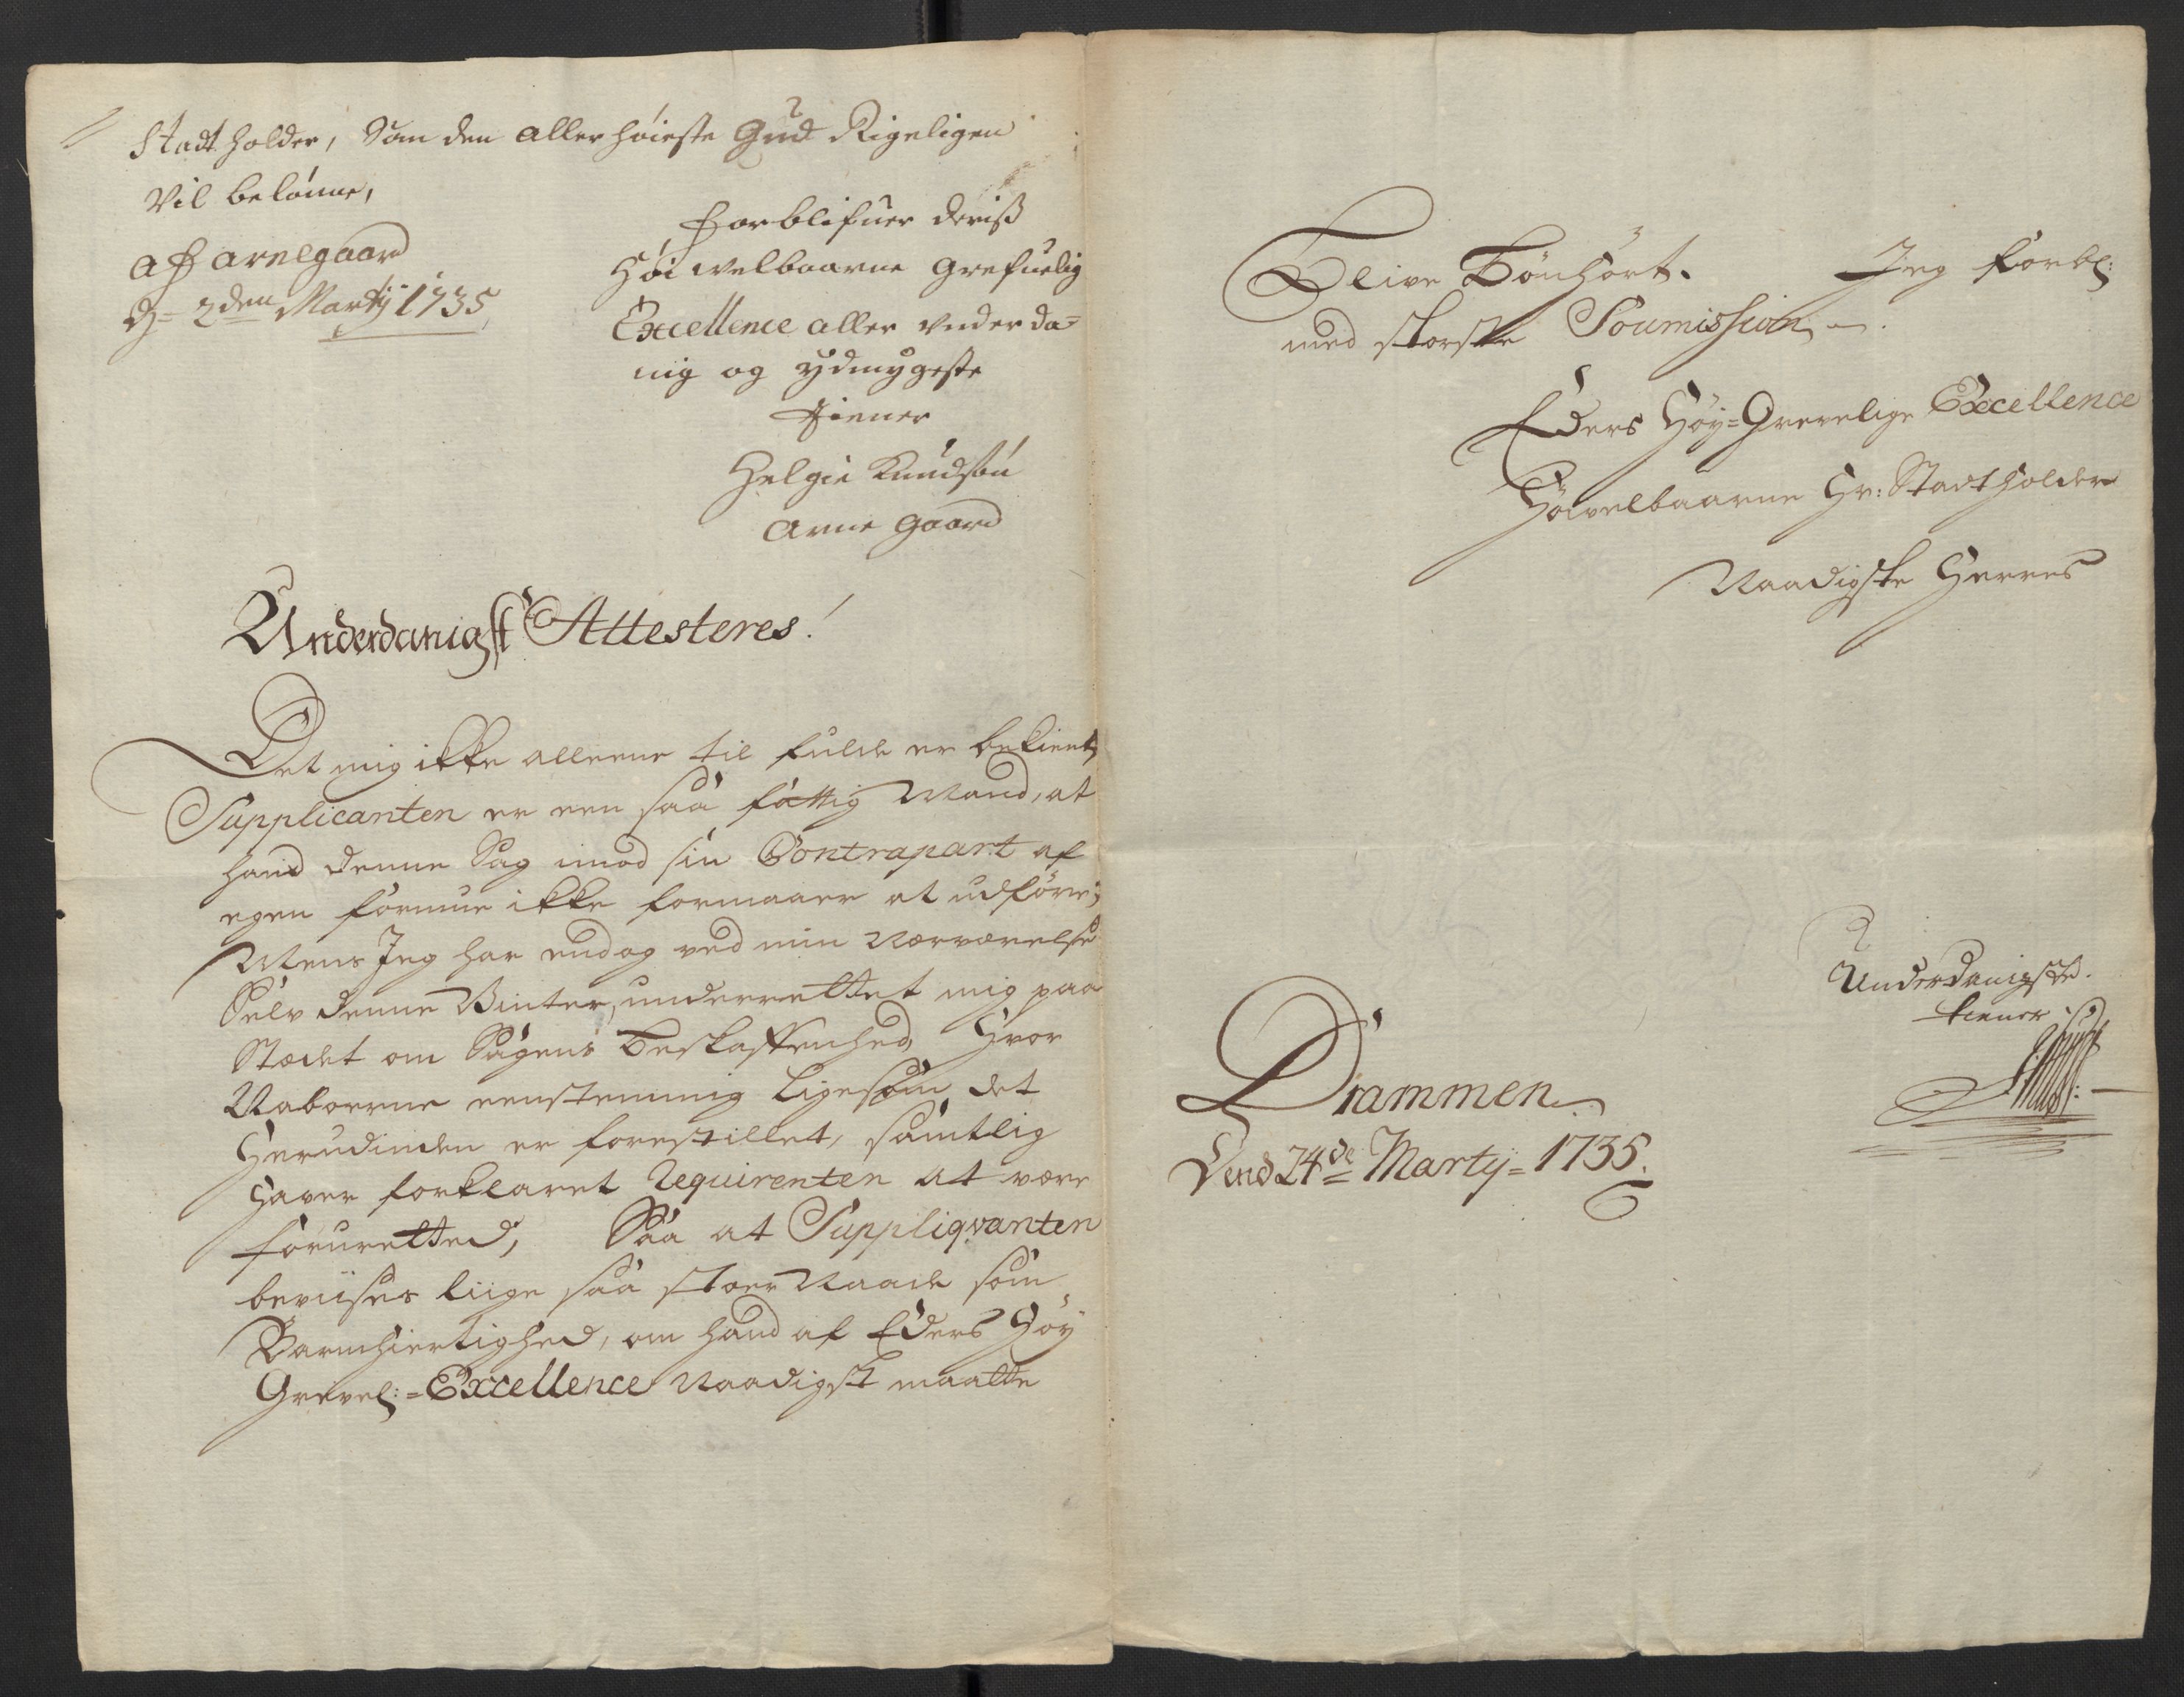 Stadtholder, Som den allerhöieste Gud Rigeligen
Vil belönne,
af Arnegaard
d= 2den Martij 1735
Forblifuer deriss
Höi welbaarne Grefuelig
Excellence aller underda=
nig og ydmygeste
tiener
Helgie Knudsön
Arne Gaard
Underdanigst Attesteres!
Det mig ikke alleene til fulde er bekient,
Supplicanten er een saa fattig Mand, at
hand denne Sag imod sin Contrapart af
egen formue ikke formaaer at udföre;
Mens Jeg har endog ved min Nærværelse
Selv denne Vinter, underrettet mig paa
Stædet om Sagens Beskaffenhed, Hvor
Naboerne eenstemmig ligesom det
Herudinden er forestillet, samtlig
haver forklaret Requirenten at være
foruretted, Saa at Suppliqvanten
beviises liige saa stoer Naade som
Barmhiertighed, om hand af Eders Höy
Grevel:=Excellence Naadigst maatte
Blive Bönhört. Jeg forbl:
med storste Soumission
Eders Höy=Grevelige Excellence
Höyvelbaarne Hr: Stadtholder
Naadigste Herres
Underdanigste
tiener
Drammen
Dend 24de Martij= 1735.